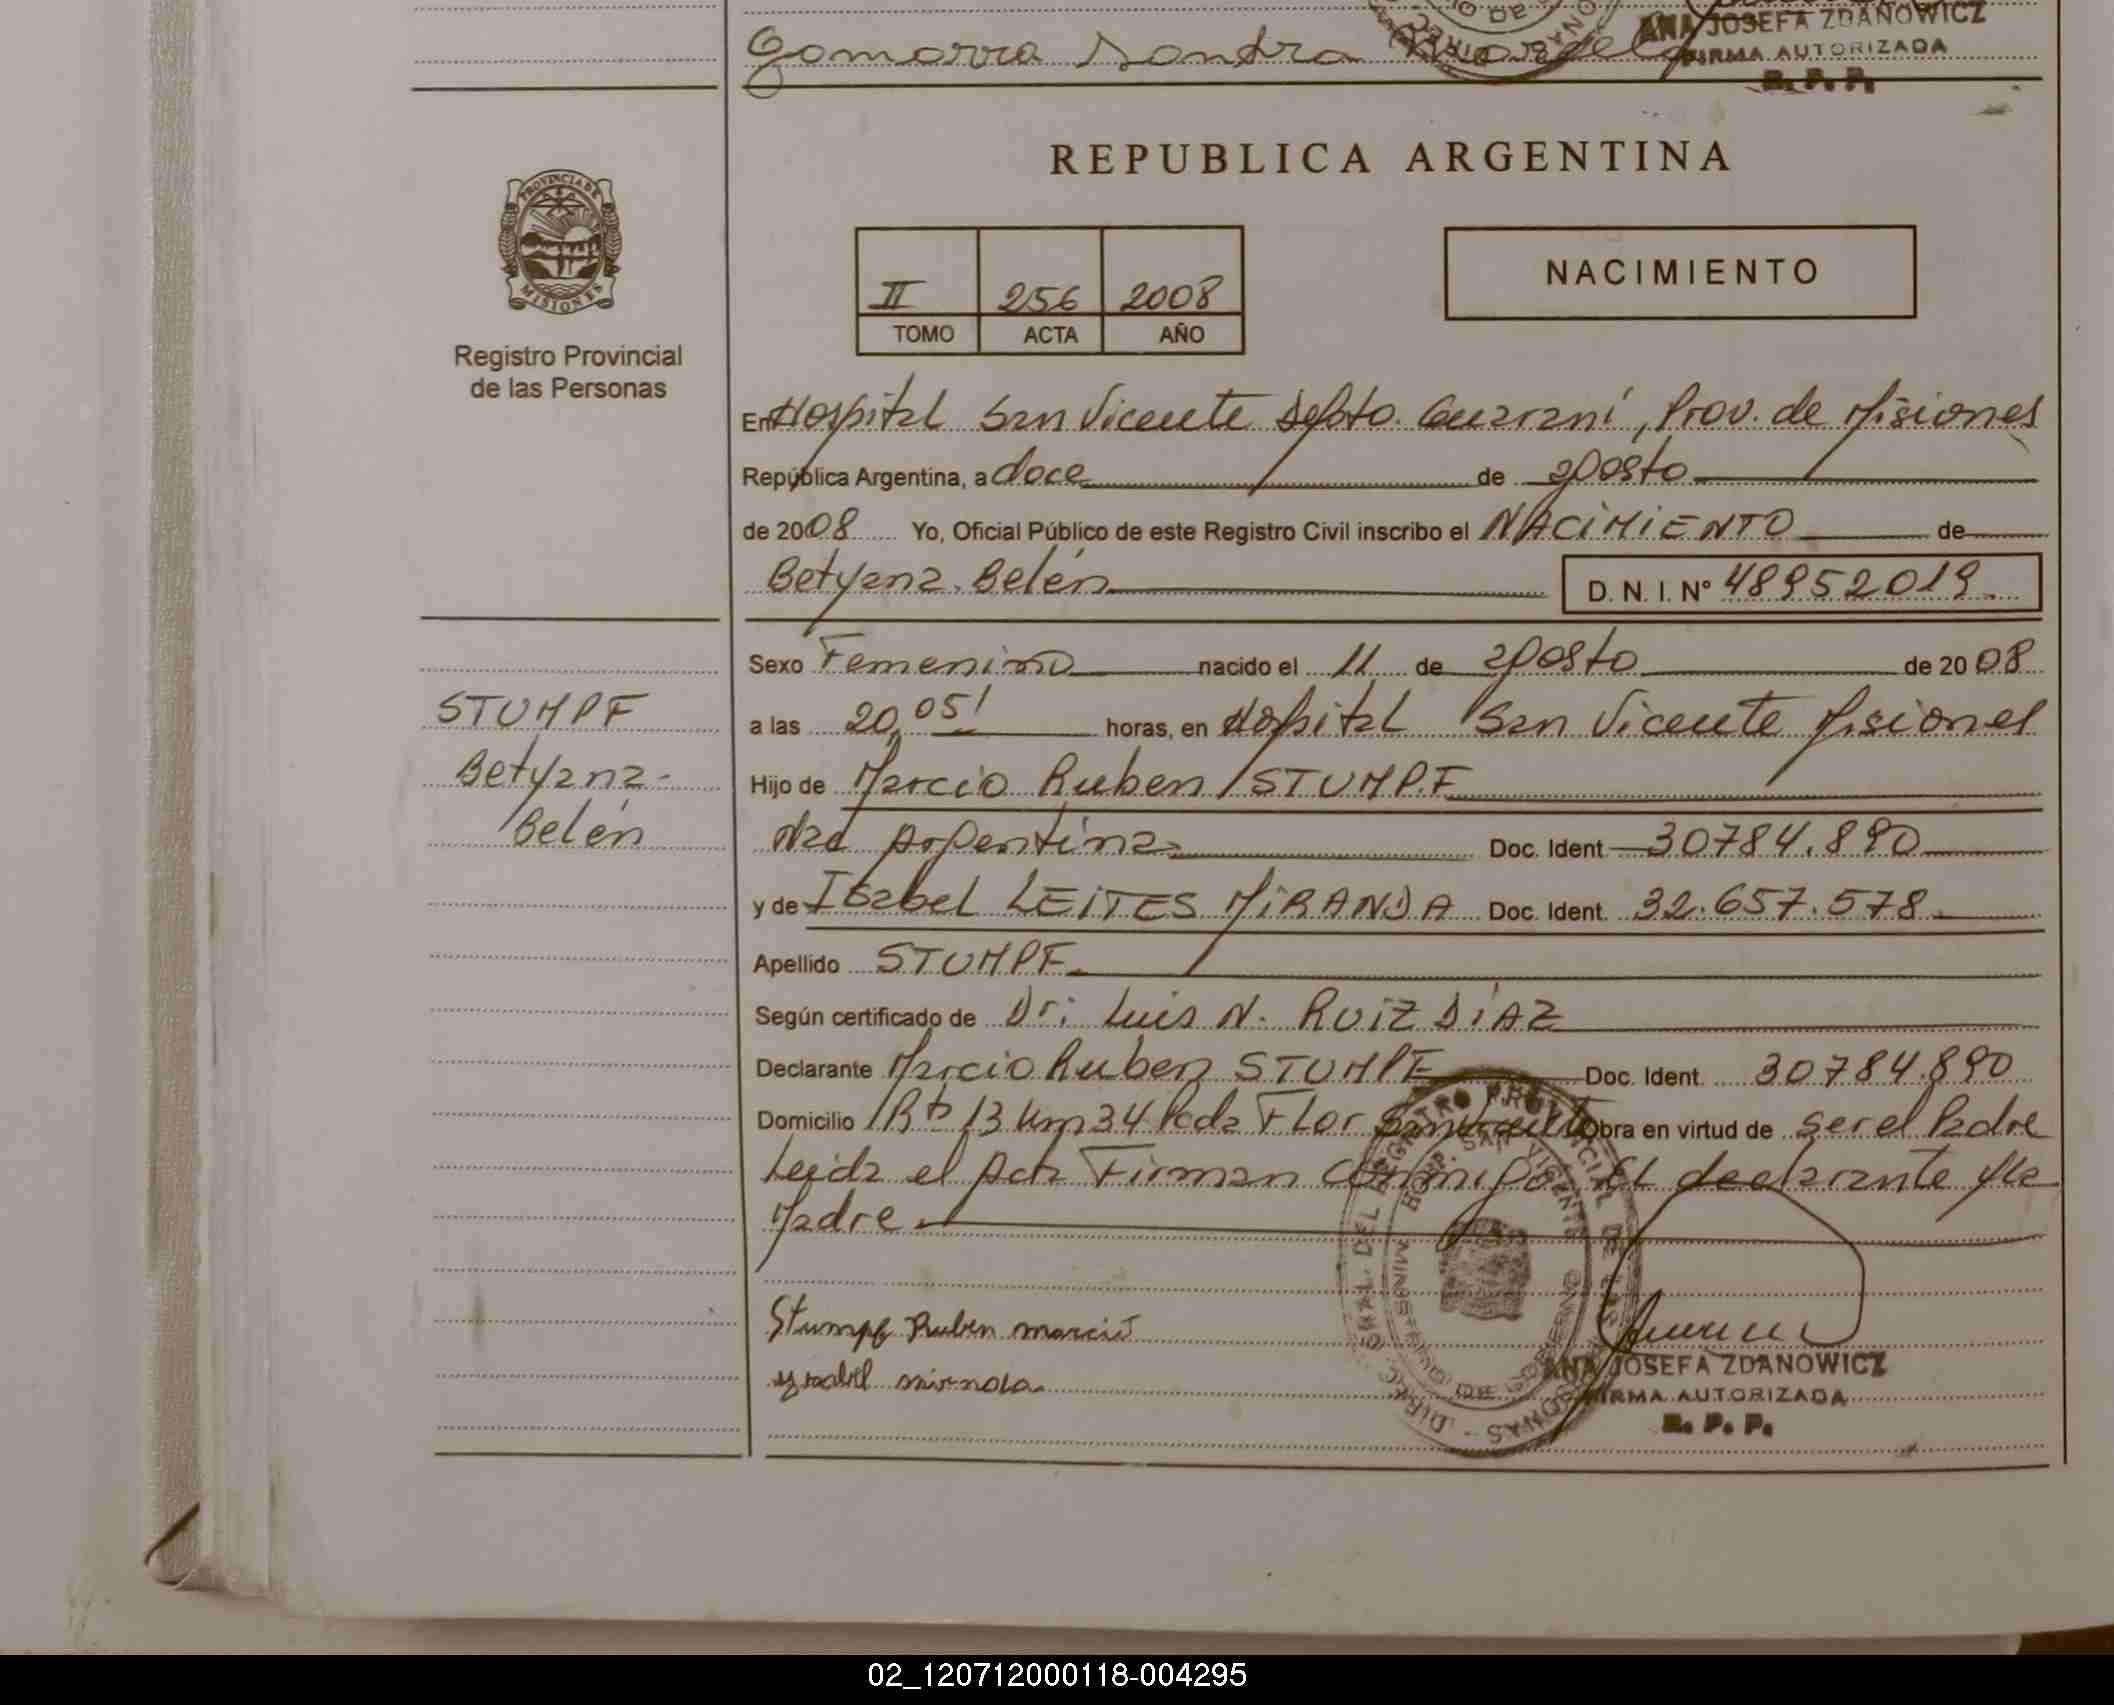 Gomorra Sandra
ANA JOSEFA ZDANOWICZ
FIRMA AUTORIZADA
R. P. P.
REPUBLICA ARGENTINA
PROVINCIA DE
MISIONES
Registro Provincial
de las Personas
II 256 2008
TOMO ACTA AÑO
NACIMIENTO
En Hospital San Vicente Depto. Guaraní, Prov. de Misiones
República Argentina, a doce de agosto
de 2008 Yo, Oficial Público de este Registro Civil inscribo el NACIMIENTO de
Betyana Belén D. N. I. Nº 48952019
Sexo Femenino nacido el 11 de agosto de 2008
STUMPF
a las 20,05' horas, en Hospital San Vicente Misiones
Betyana
Hijo de Marcio Ruben STUMPF
Belén
Nac Argentina Doc. Ident 30784.890
y de Isabel LEITES MIRANDA Doc. Ident. 32.657.578
Apellido STUMPF
Según certificado de Dr: Luis N. RUIZ DIAZ
Declarante Marcio Ruben STUMPF Doc. Ident. 30784.890
Domicilio Rta 13 km 34 Pcda Flor San Vicente Obra en virtud de ser el Padre
Leida el Acta Firman conmigo El declarante y la
Madre
Stumpf Ruben marcio
ysabel miranda
DEL REGISTRO PROVINCIAL DE LAS PERSONAS
HOSP. SAN VICENTE
MINISTERIO DE GOBIERNO
ANA JOSEFA ZDANOWICZ
FIRMA AUTORIZADA
R. P. P.
02_120712000118-004295